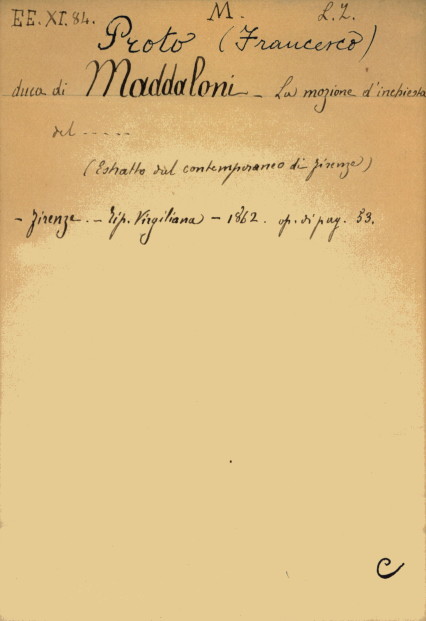 EE. XI. 84. M. L. Z.
Proto (Francesco)
duca di Maddaloni - La mozione d'inchiesta
del .....
(Estratto dal contemporaneo di Firenze)
- Firenze. - Tip. Virgiliana - 1862. op. di pag. 53.
C